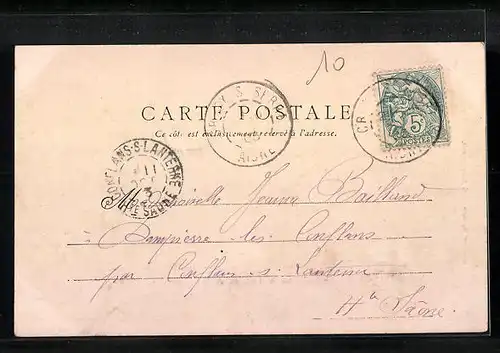 10
CARTE POSTALE
Ce côté est exclusivement réservé à l'adresse.
CRÉCY-S-SERRE
AISNE
CR
AISNE
5
POSTES
CONFLANS-S-LANTERNE
11
3
HTE SAÔNE
Mademoiselle Jeanne
Dampierre les Conflans
par Conflans s. Lanterne
Hte Saône